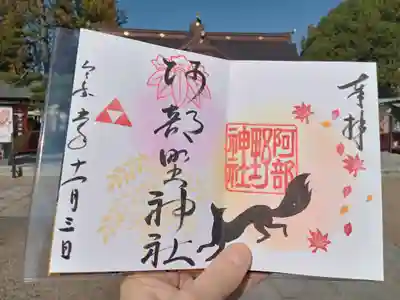 奉拝
阿部野神社
阿部野神社
令和五年十一月三日